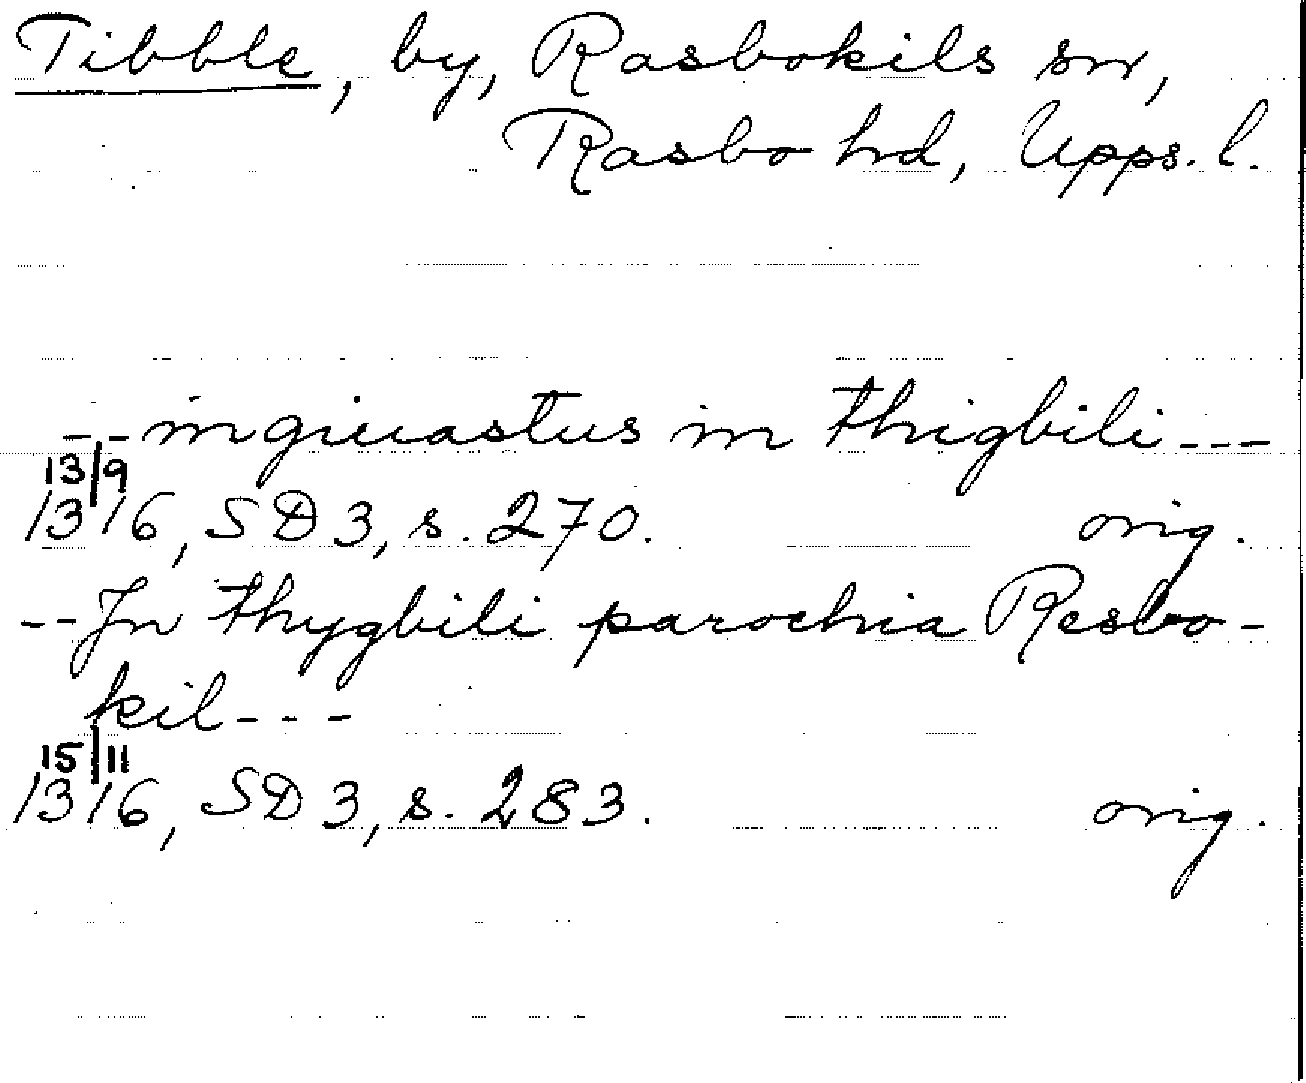 Tibble, by, Rasbokils sn,
Rasbo hd, Upps. l.
-- ingiuastus in thigbili ---
13/9
1316, SD 3, s. 270. orig.
-- Jn thygbili parochia Resbo-
kil ---
15/11
1316, SD 3, s. 283. orig.